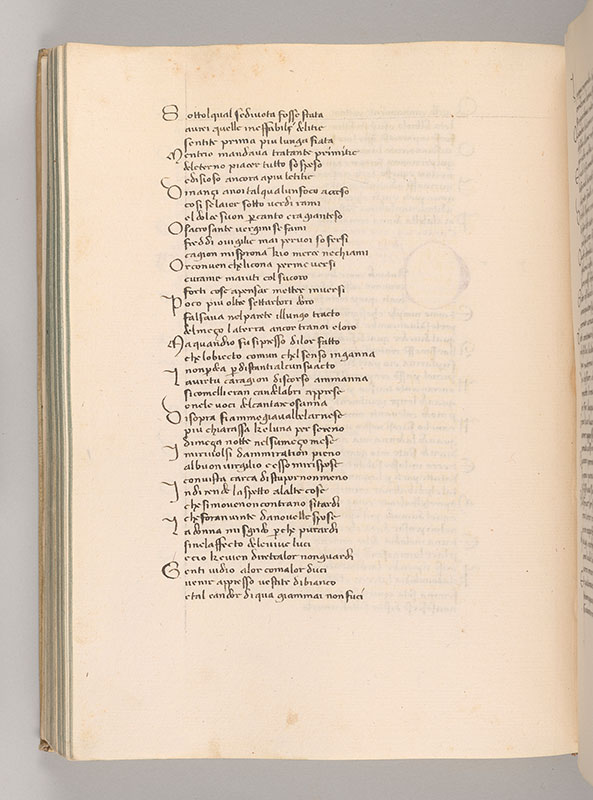 Sottol qual sedivota fosse stata
aurei quelle ineffabile delitie
sentite prima piu lunga fiata
Mentrio mandava tra tante primitie
deleterno piacer tutto sospeso
e disioso ancora apiu letitie
Dinançi anoi tal qual un foco acceso
cosi se laier sotto verdi rami
el dolce suon per canto era gia inteso
O sacrosante vergini se fami
freddi o vigilie mai per voi sofersi
cagion mi sprona kio merce ne chiami
Or conven chelicona per me versi
e urame maiuti col suo coro
forti cose apensar metter inversi
Poco piu oltre sett arbori doro
falsava nel parere il lungo tracto
del meço la terra ancor tra noi eloro
Ma quandio fu si presso di lor fatto
che lobiecto comun chel senso inganna
non perdea per distantia alcun suo acto
La virtu cha ragion discorso ammanna
si comelli eran candelabri apprese
e nele voci del cantare osanna
Di sopra fiammegiava il bel arnese
piu chiar assa ke luna per sereno
di meça notte nel suo meço mese
I mi rivolsi dammiration pieno
al buon virgilio e esso mi rispose
con vista carca di stupor non meno
Indi rende laspetto alalte cose
che si movieno incontra noi si tardi
che foran vinte da novelle spose
La donna mi sgrido perche pur ardi
si nel affecto dele vive luci
e cio ke vien diretro a lor non guardi
Genti vidio alor como a lor duci
venir appresso vestite di bianco
e tal candor di qua giammai non fuci